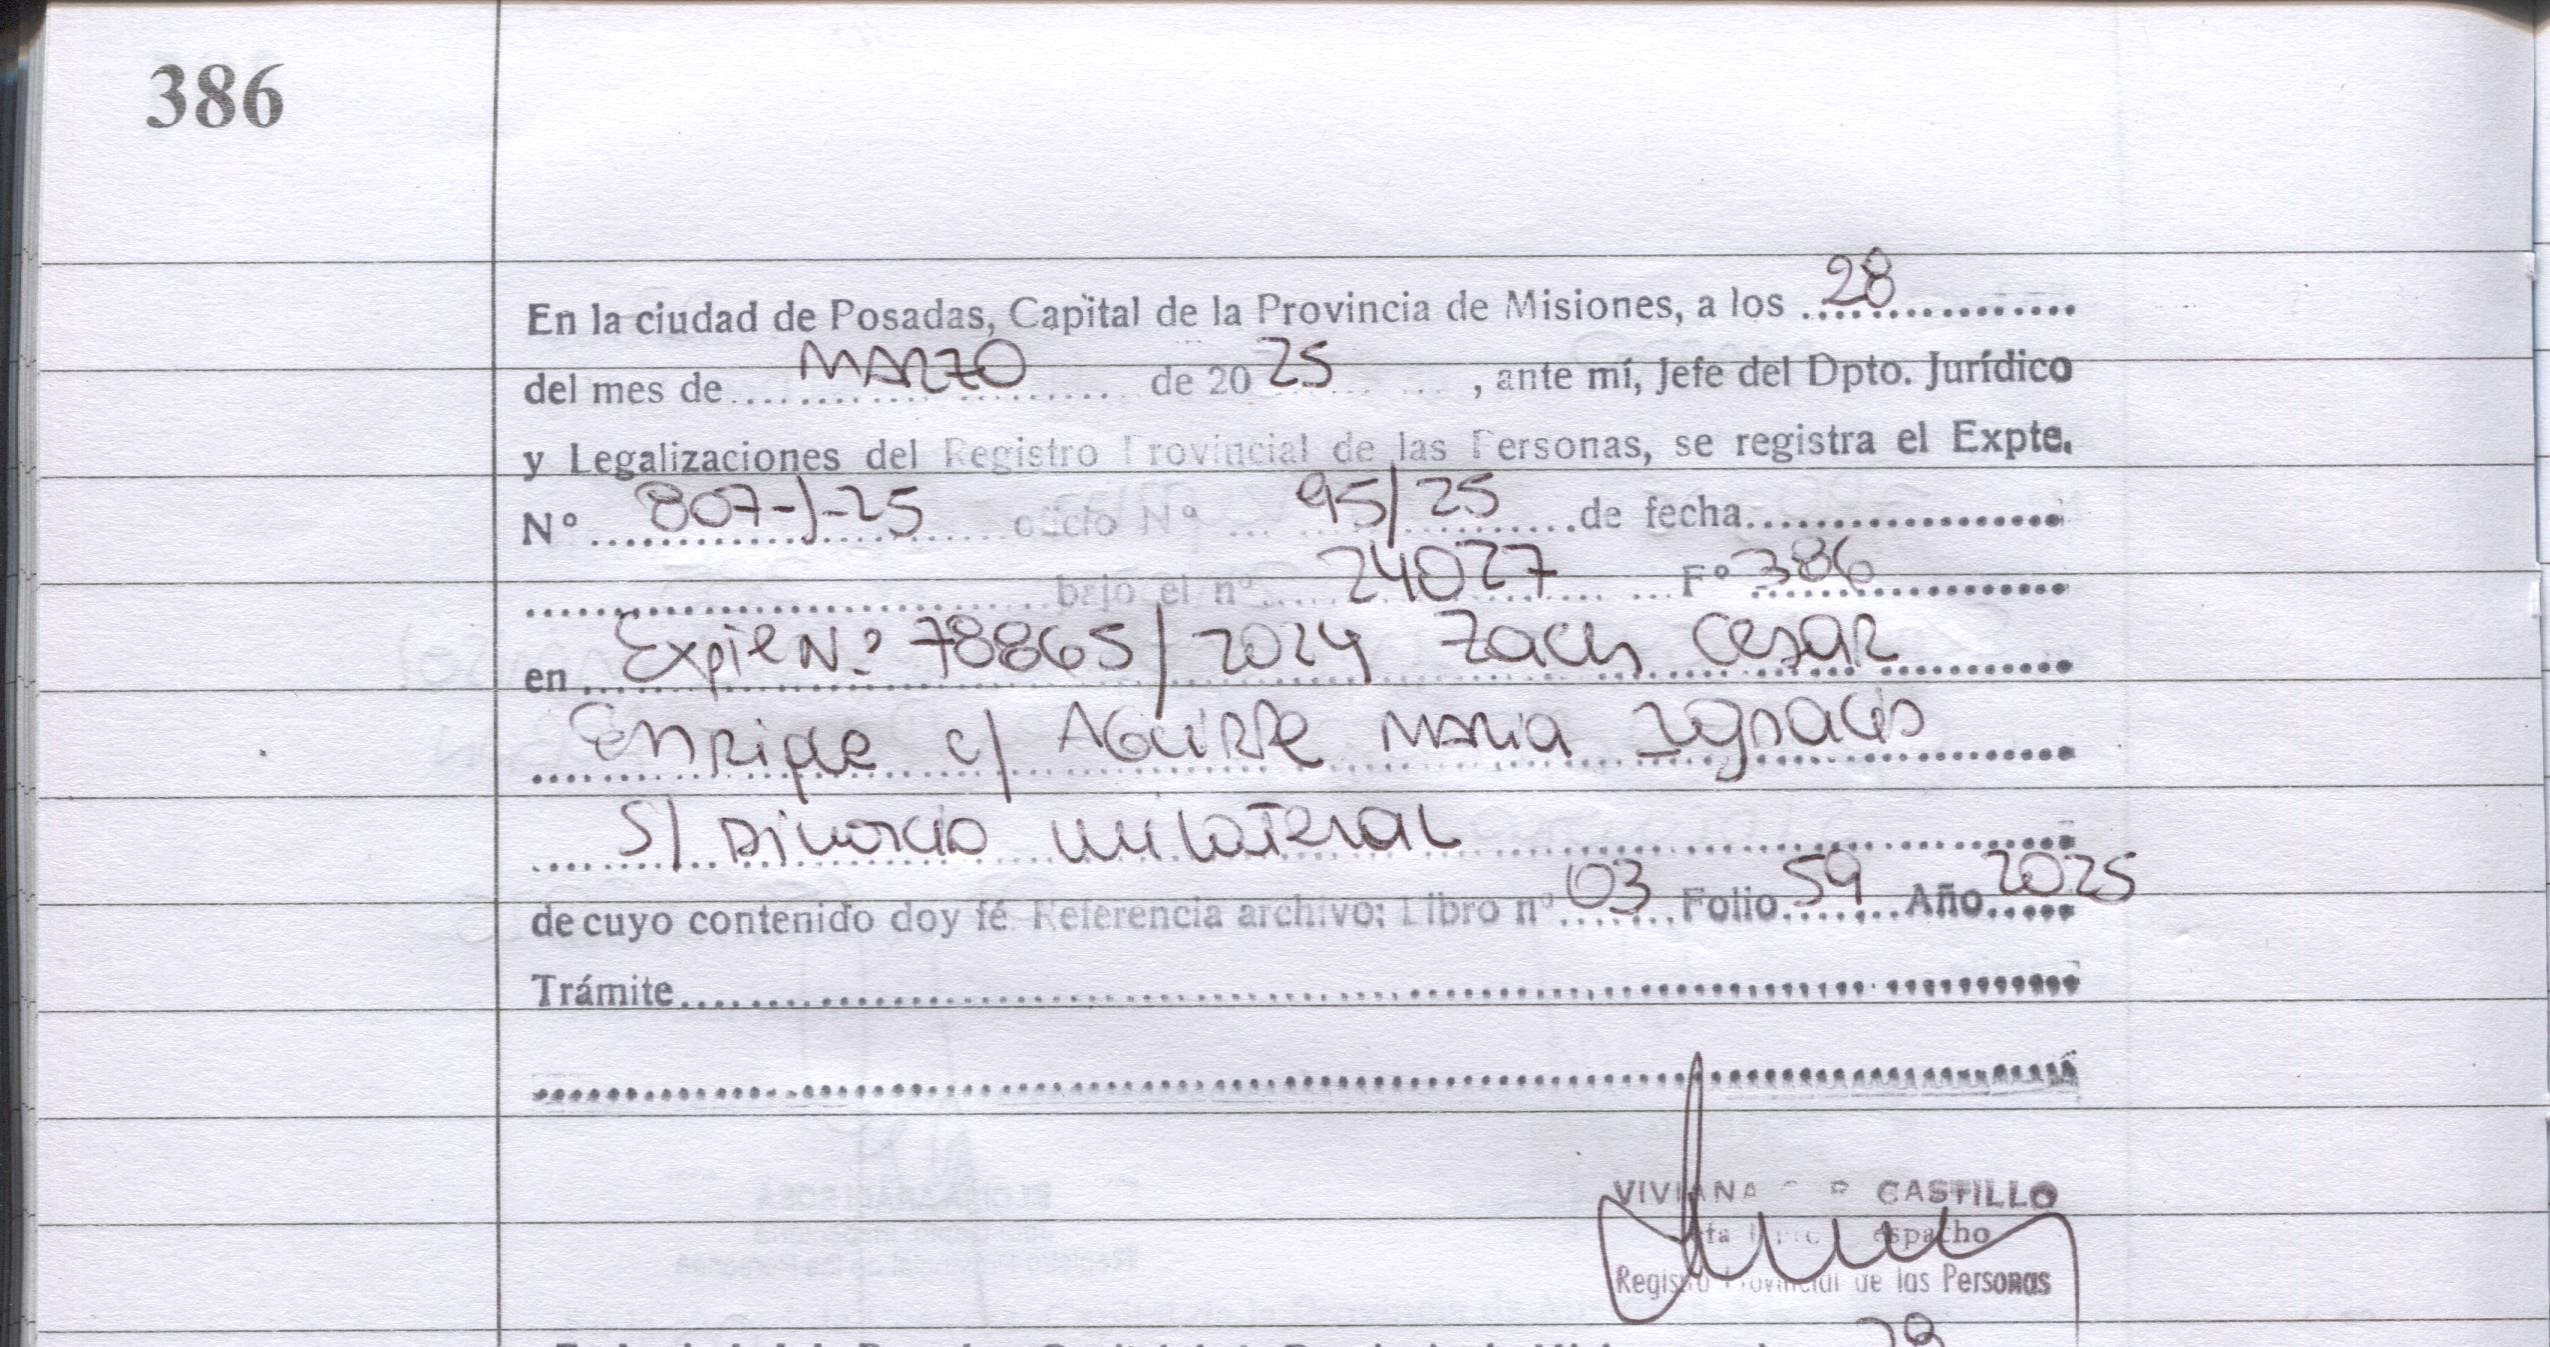 386
En la ciudad de Posadas, Capital de la Provincia de Misiones, a los 28
del mes de MARZO de 2025, ante mí, Jefe del Dpto. Jurídico
y Legalizaciones del Registro Provincial de las Personas, se registra el Expte.
N° 807-J-25 oficio N° 95/25 de fecha
bajo el n° 24027 F° 386
en Expte N.° 78865/2024 Zach Cesar
Enrique c/ Aguirre Maria Ignacia
S/ Divorcio unilateral
de cuyo contenido doy fé Referencia archivo: Libro n° 03 Folio 59 Año 2025
Trámite
VIVIANA CASTILLO
Registro Provincial de las Personas